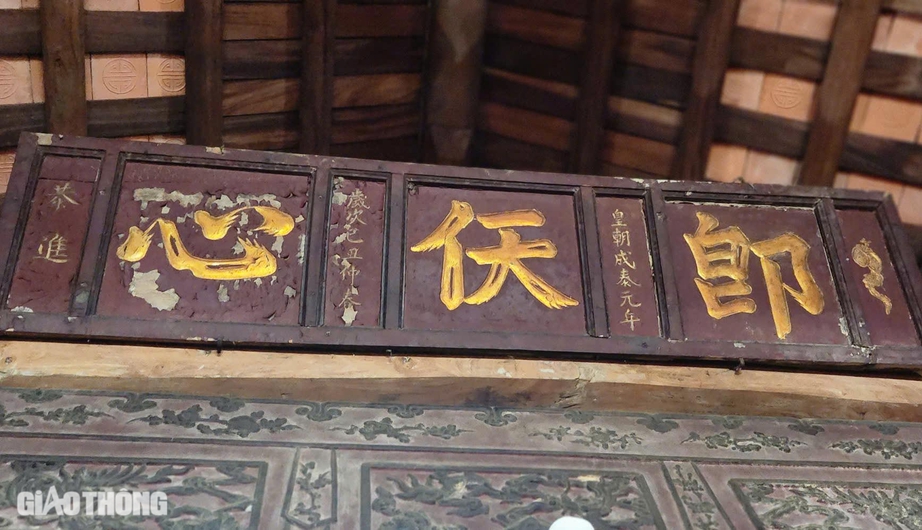 即
皇朝成泰元年
仸
歲次己丑仲春
心
恭進
GIAOTHÔNG